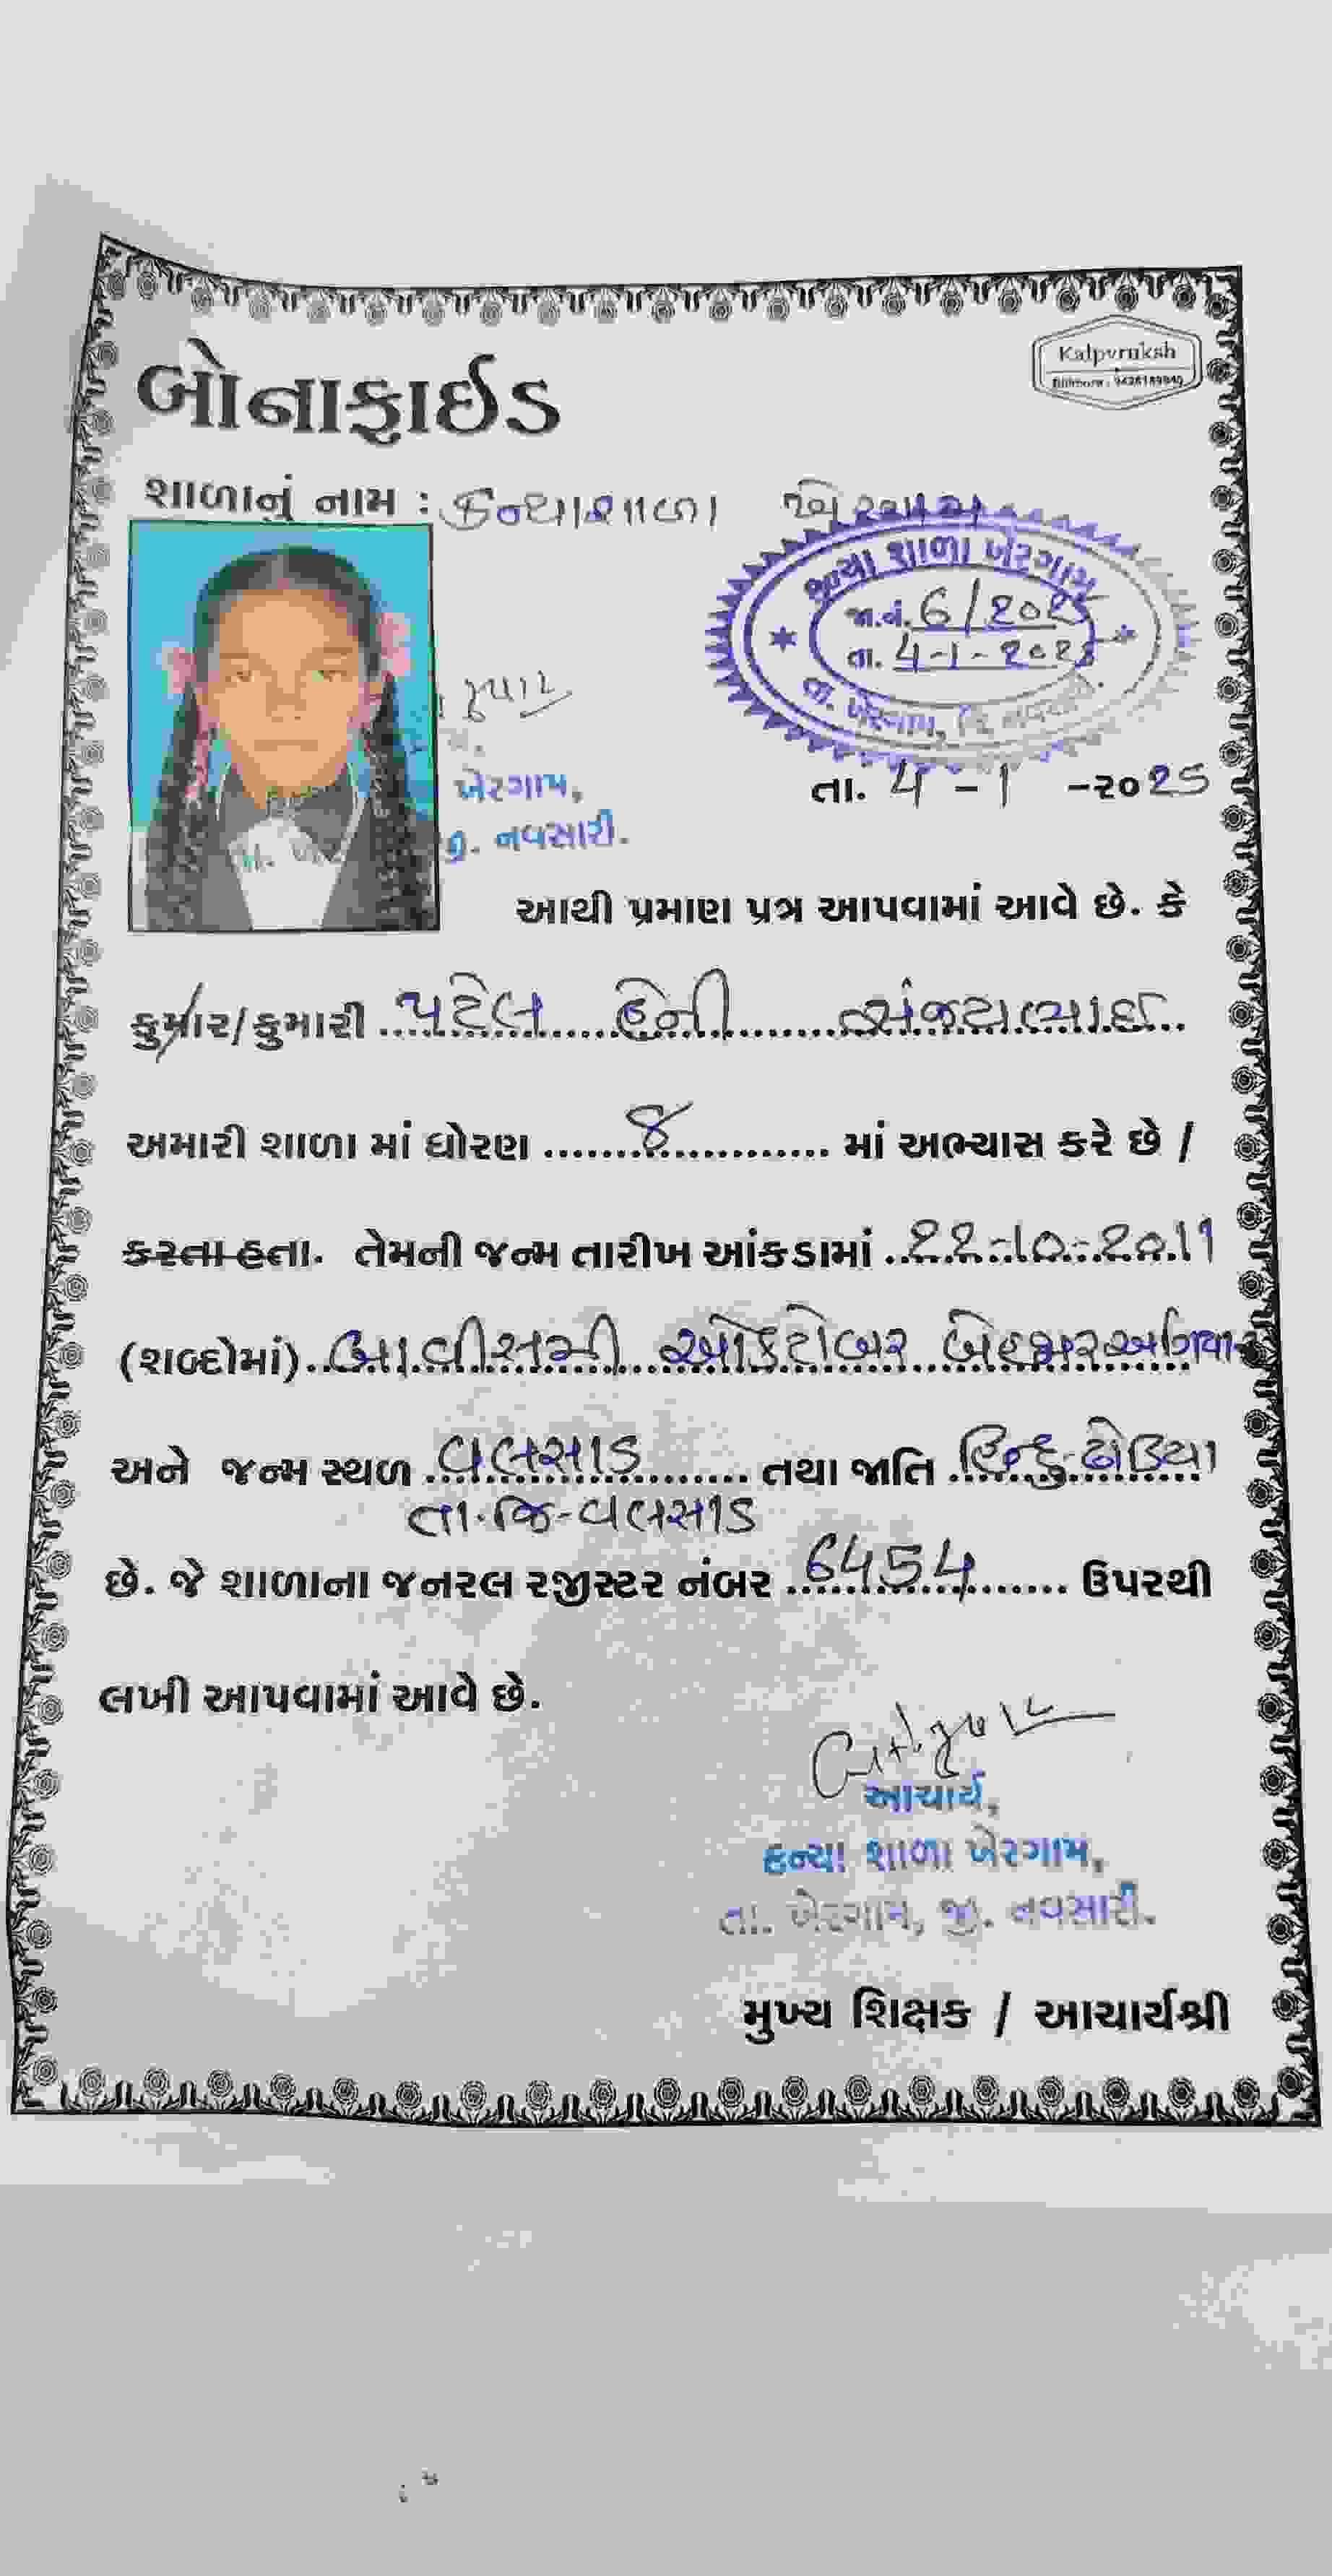 બોનાફાઈડ
Kalpvruksh
શાળાનું નામ : કન્યાશાળા ખેરગામ
કન્યા શાળા ખેરગામ
જા.નં. 6/202
તા. 4-1-202
તા. ખેરગામ, જિ. નવસારી.
ખેરગામ,
જી. નવસારી.
તા. 4 - 1 -૨૦25
આથી પ્રમાણ પત્ર આપવામાં આવે છે. કે
કુમાર/કુમારી પટેલ હેની સંજયભાઈ
અમારી શાળા માં ધોરણ 8 માં અભ્યાસ કરે છે /
કરતા હતા. તેમની જન્મ તારીખ આંકડામાં 22-10-2011
(શબ્દોમાં) બાવીસમી ઓક્ટોબર બેહજાર અગિયાર
અને જન્મ સ્થળ વલસાડ તથા જાતિ હિન્દુ-ઢોડિયા
તા.જિ-વલસાડ
છે. જે શાળાના જનરલ રજીસ્ટર નંબર 6454 ઉપરથી
લખી આપવામાં આવે છે.
આચાર્ય,
કન્યા શાળા ખેરગામ,
તા. ખેરગામ, જી. નવસારી.
મુખ્ય શિક્ષક / આચાર્યશ્રી